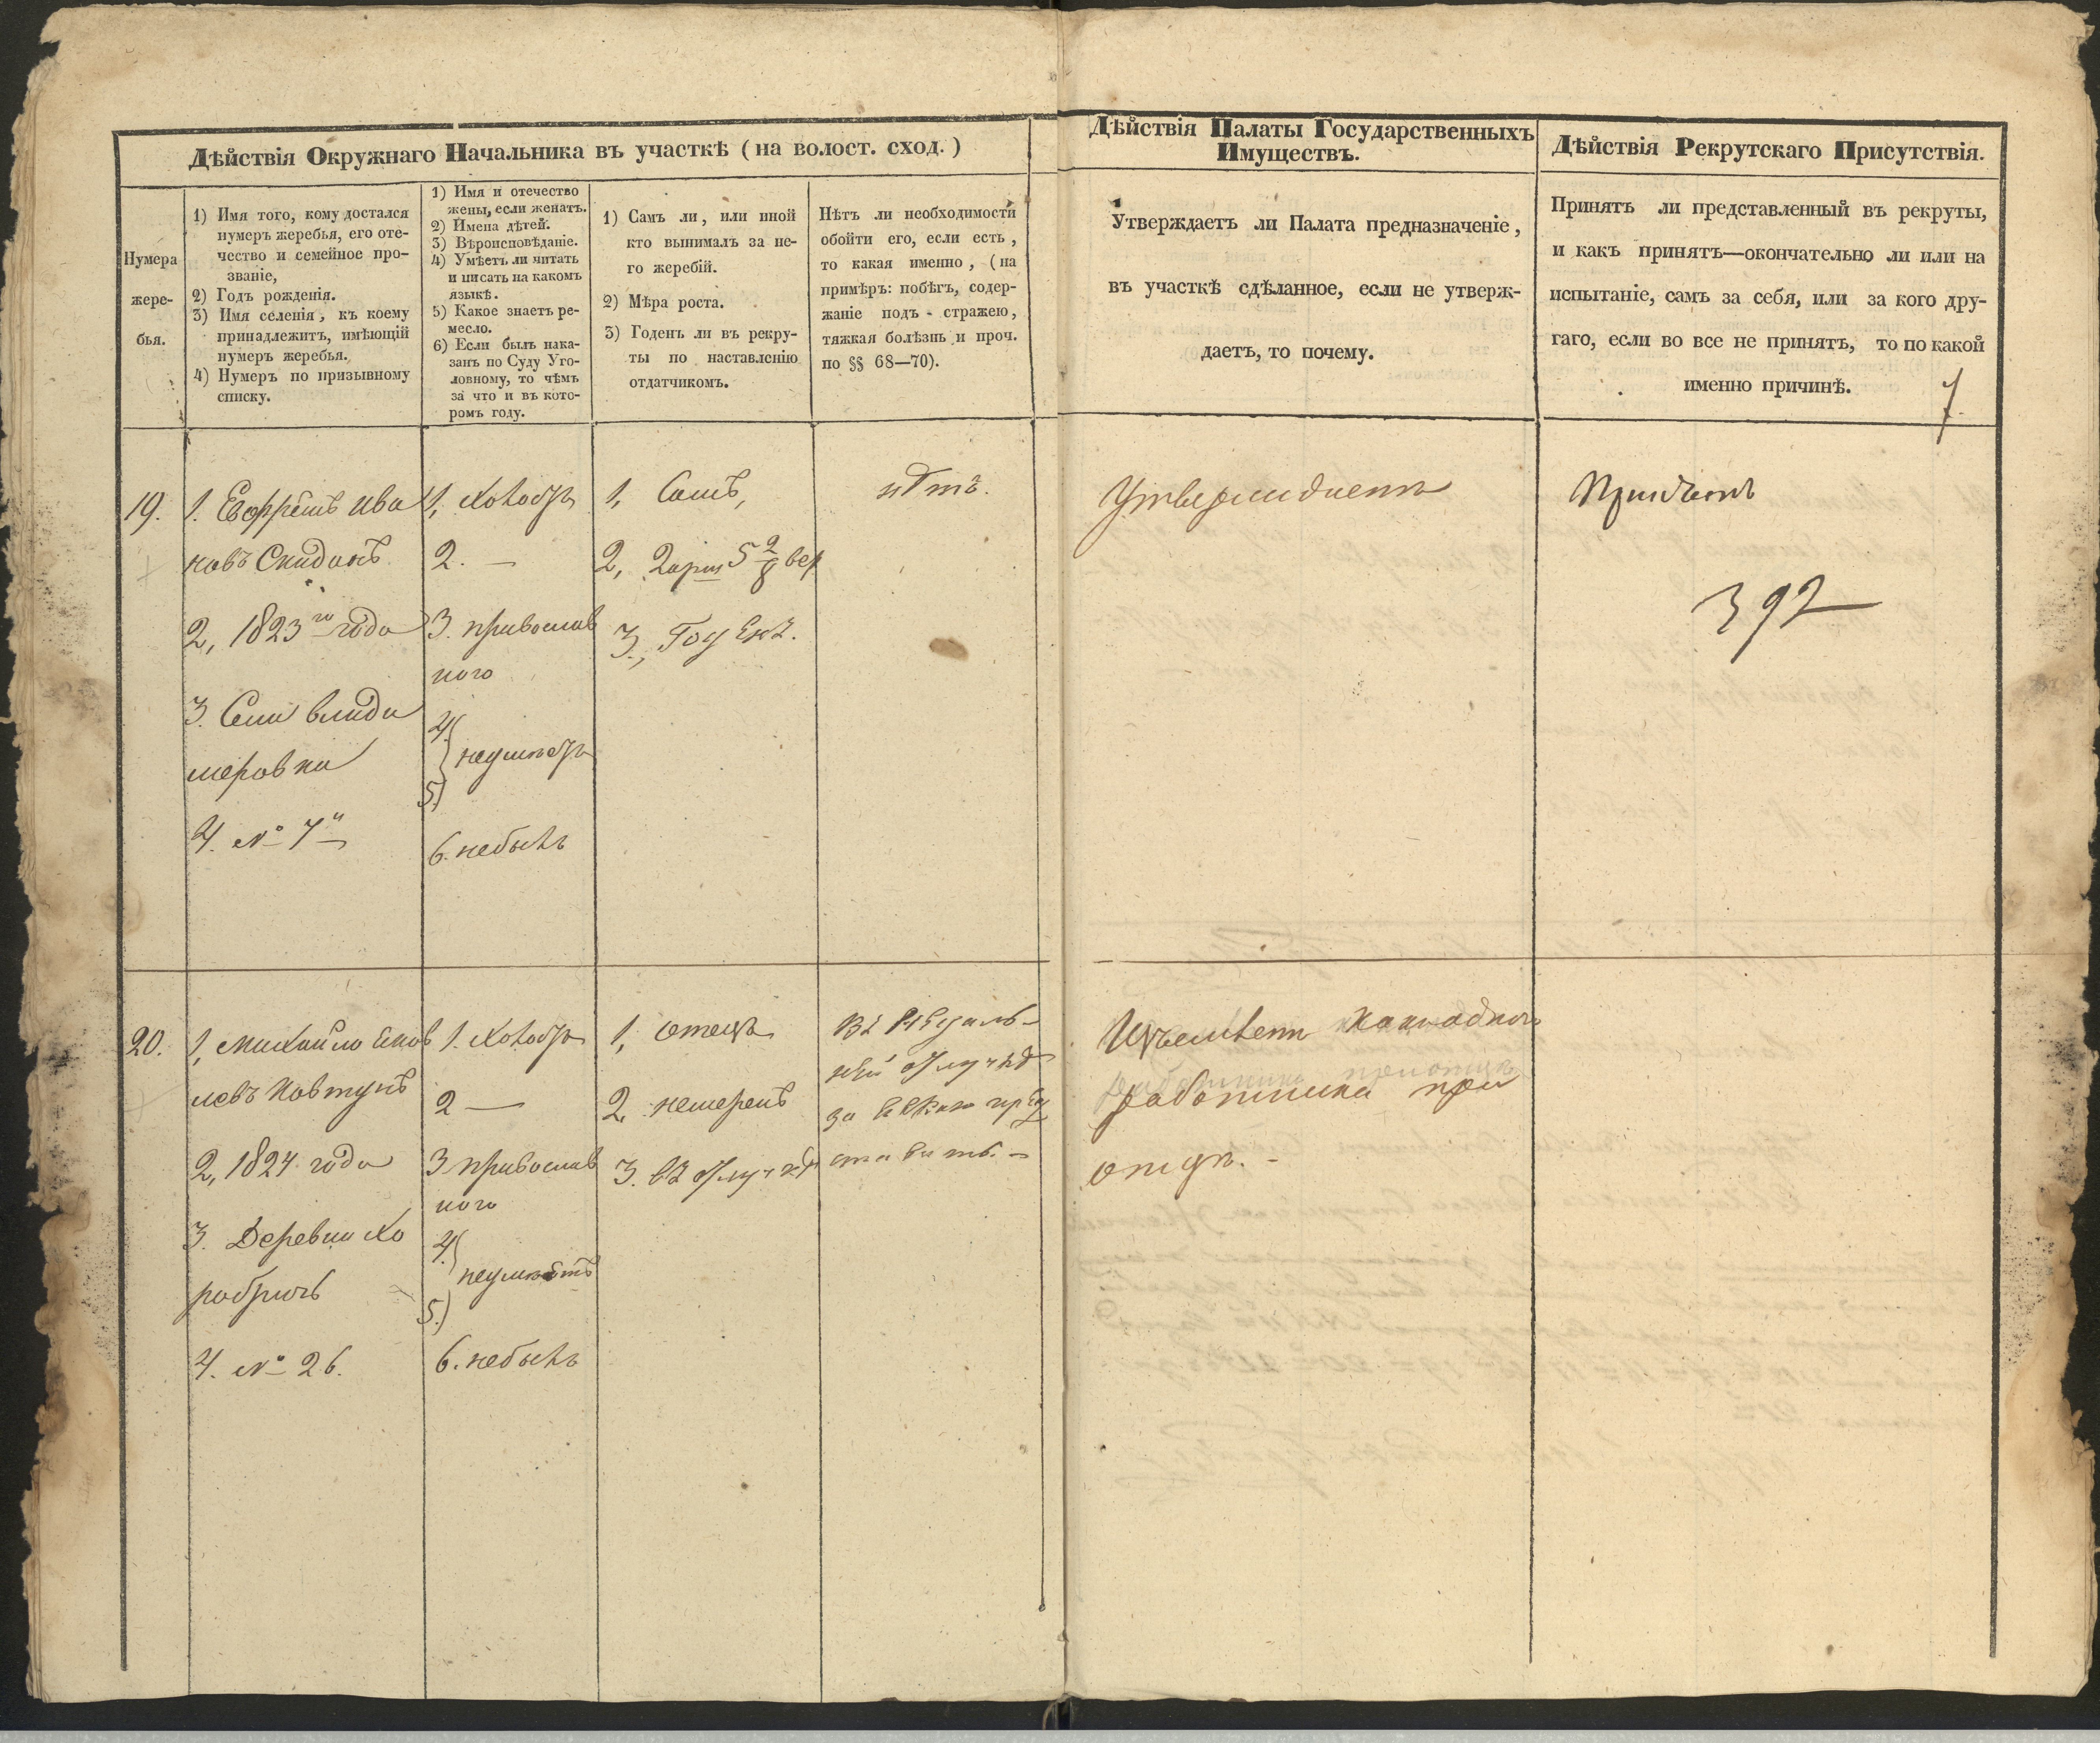 Дѣйствія Окружнаго Начальника въ участкѣ (на волост. сход.)
Дѣйствія Палаты Государственныхъ
Имуществъ.
Дѣйствія Рекрутскаго Присутствія.
Нумера
жере-
бья.
1) Имя того, кому достался
нумеръ жеребья, его оте-
чество и семейное про-
званіе,
2) Годъ рожденія.
3) Имя селенія, къ коему
принадлежитъ, имѣющій
нумеръ жеребья.
4) Нумеръ по призывному
списку.
1) Имя и отечество
жены, если женатъ.
2) Имена дѣтей.
3) Вѣроисповѣданіе.
4) Умѣетъ ли читать
и писать на какомъ
языкѣ.
5) Какое знаетъ ре-
месло.
6) Если былъ нака-
занъ по Суду Уго-
ловному, то чѣмъ
за что и въ кото-
ромъ году.
1) Самъ ли, или иной
кто вынималъ за не-
го жеребій.
2) Мѣра роста.
3) Годенъ ли въ рекру-
ты по наставленію
отдатчикомъ.
Нѣтъ ли необходимости
обойти его, если есть,
то какая именно, (на
примѣръ: побѣгъ, содер-
жаніе подъ-стражею,
тяжкая болѣзнь и проч.
по §§ 68—70).
Утверждаетъ ли Палата предназначеніе,
въ участкѣ сдѣланное, если не утверж-
даетъ, то почему.
Принятъ ли представленный въ рекруты,
и какъ принятъ—окончательно ли или на
испытаніе, самъ за себя, или за кого дру-
гаго, если во все не принятъ, то по какой
именно причинѣ.
7.
19.
1. Ефремъ Ива
новъ Скиданъ
2, 1823 го года
3. Села Влади
меровки
4. № 7 й
1, Холостъ
2. —
3. православ
ного
4.
неумѣетъ
5)
6. небылъ
1, Самъ,
2, 2 арш 5 2/8 вер
3., Годенъ.
нѣтъ.
Утверждаетъ
Принятъ
392
20.
1, Михайло Яков
левъ Ковтунъ
2, 1824 года
3. Деревни Хо
робричь
4. № 26.
1. Холостъ
2 —
3 православ
ного
4.
неумѣетъ
5.)
6. небылъ
1, отецъ
2, немеренъ
3. въ отлучкѣ
въ
отлучкѣ
за
ставить. —
работника при
отцѣ. -